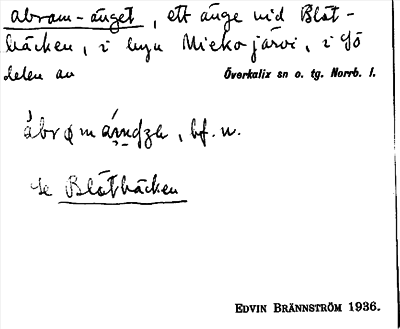 abram-änget, ett änge vid Blåt-
bäcken, i byn Miekojärvi, i sö
delen av Överkalix sn o. tg. Norrb. l.
ábrɑmáṇḍẓɑ, bf. n.
se Blåtbäcken
EDVIN BRÄNNSTRÖM 1936.